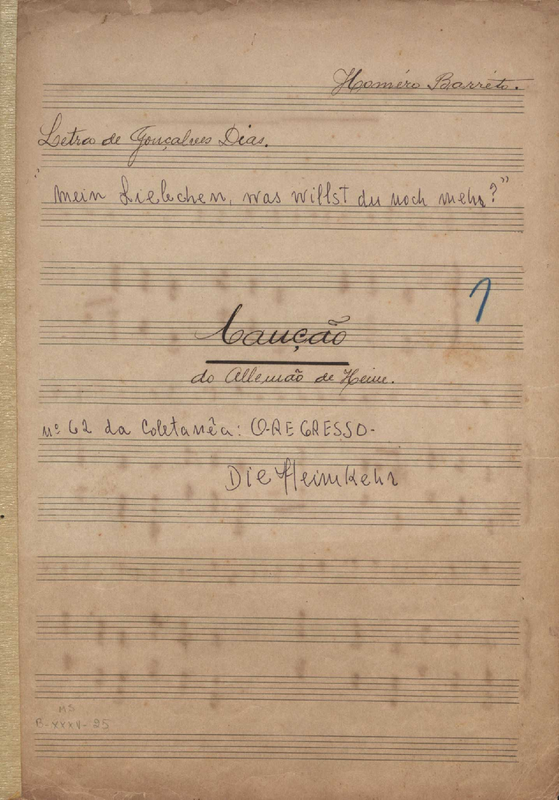 Homéro Barréto.
Letra de Gonçalves Dias.
"Mein Liebchen, was willst du noch mehr?"
1
Canção
do Allemão de Heine.
nº 62 da Coletanêa: O-REGRESSO-
Die Heimkehr
MS
B-XXXV-95